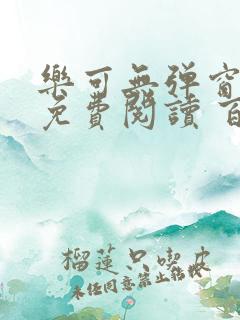 樂可無彈窗
免費閱讀 百
榴蓮只喫皮
未经同意禁止转载